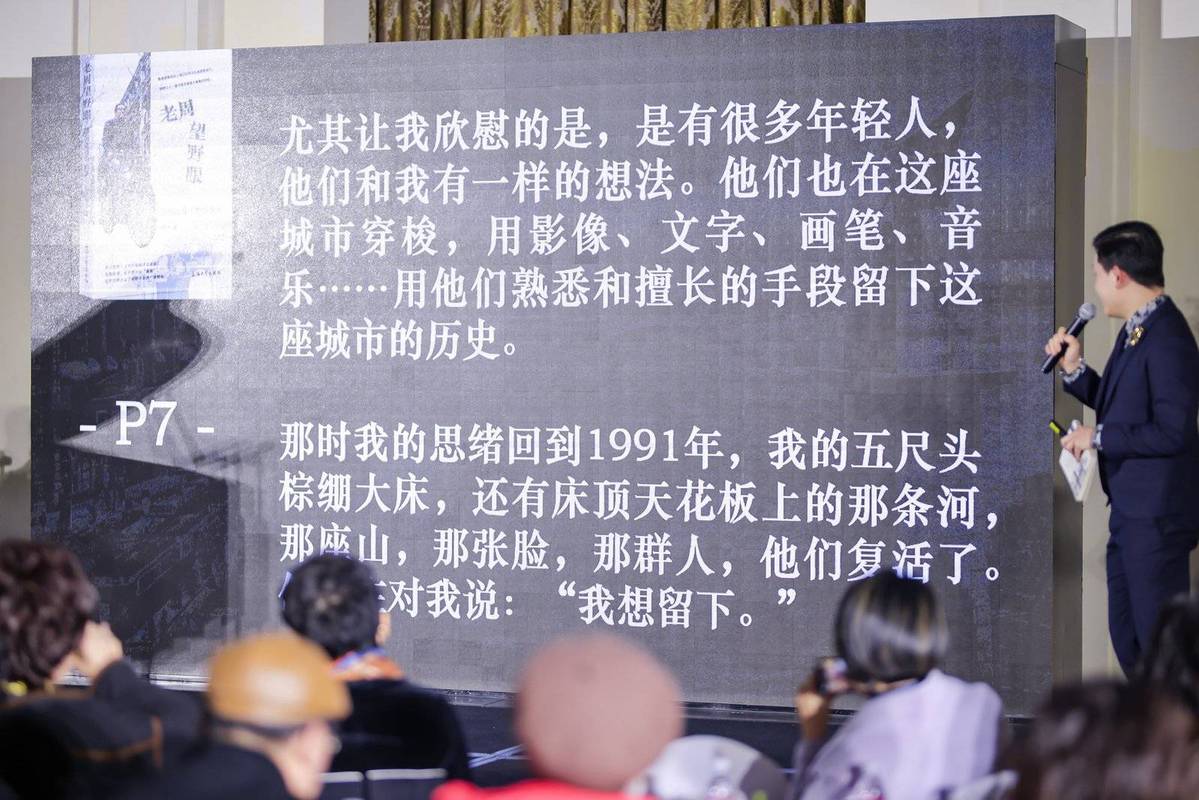 老周望野眼
尤其让我欣慰的是，是有很多年轻人，
他们和我有一样的想法。他们也在这座
城市穿梭，用影像、文字、画笔、音
乐……用他们熟悉和擅长的手段留下这
座城市的历史。
- P7 -
那时我的思绪回到1991年，我的五尺头
棕绷大床，还有床顶天花板上的那条河，
那座山，那张脸，那群人，他们复活了。
对我说：“我想留下。”